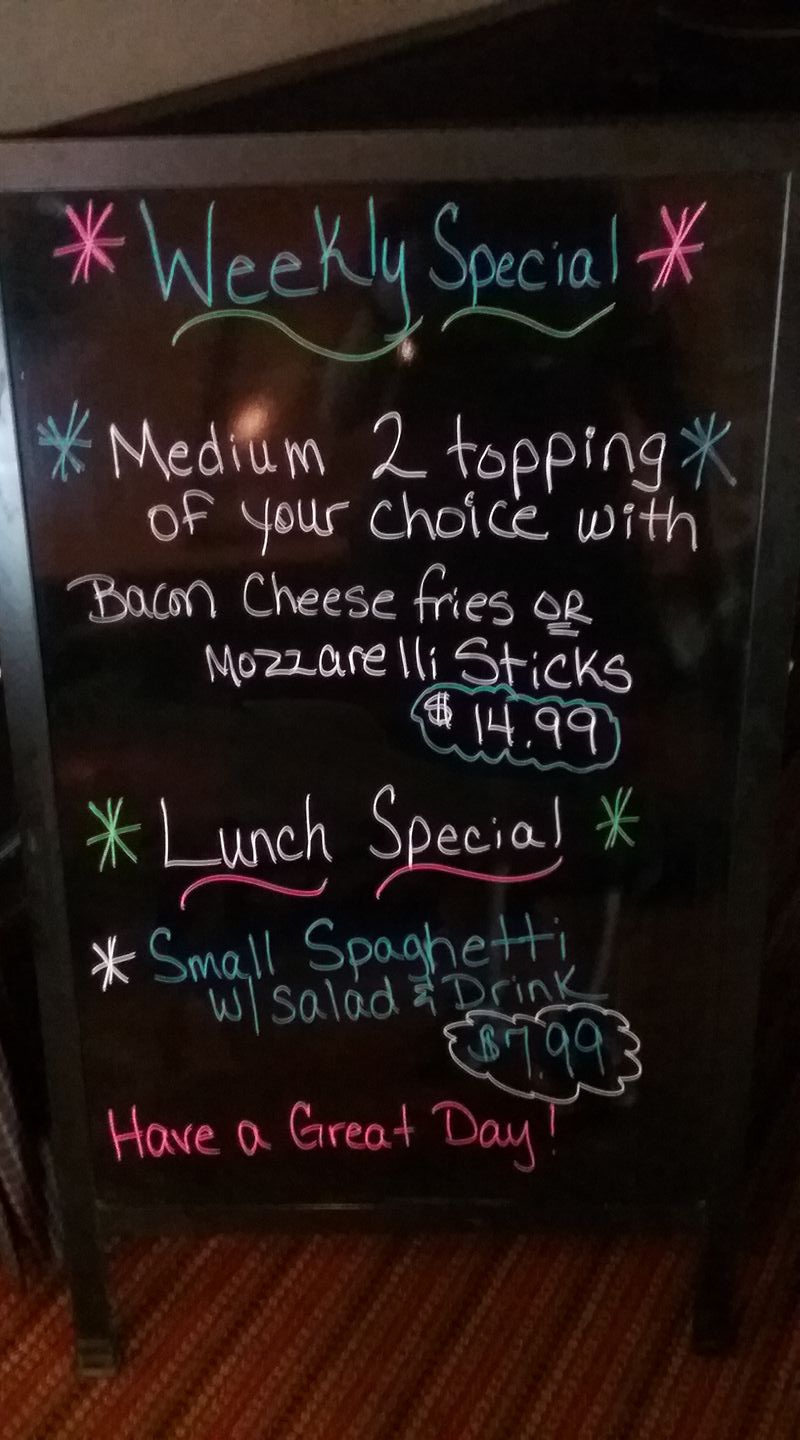 * Weekly Special *
* Medium 2 topping *
of your choice with
Bacon Cheese fries OR
Mozzarelli Sticks
$14.99
* Lunch Special *
* Small Spaghetti
w/ salad & Drink
$7.99
Have a Great Day!